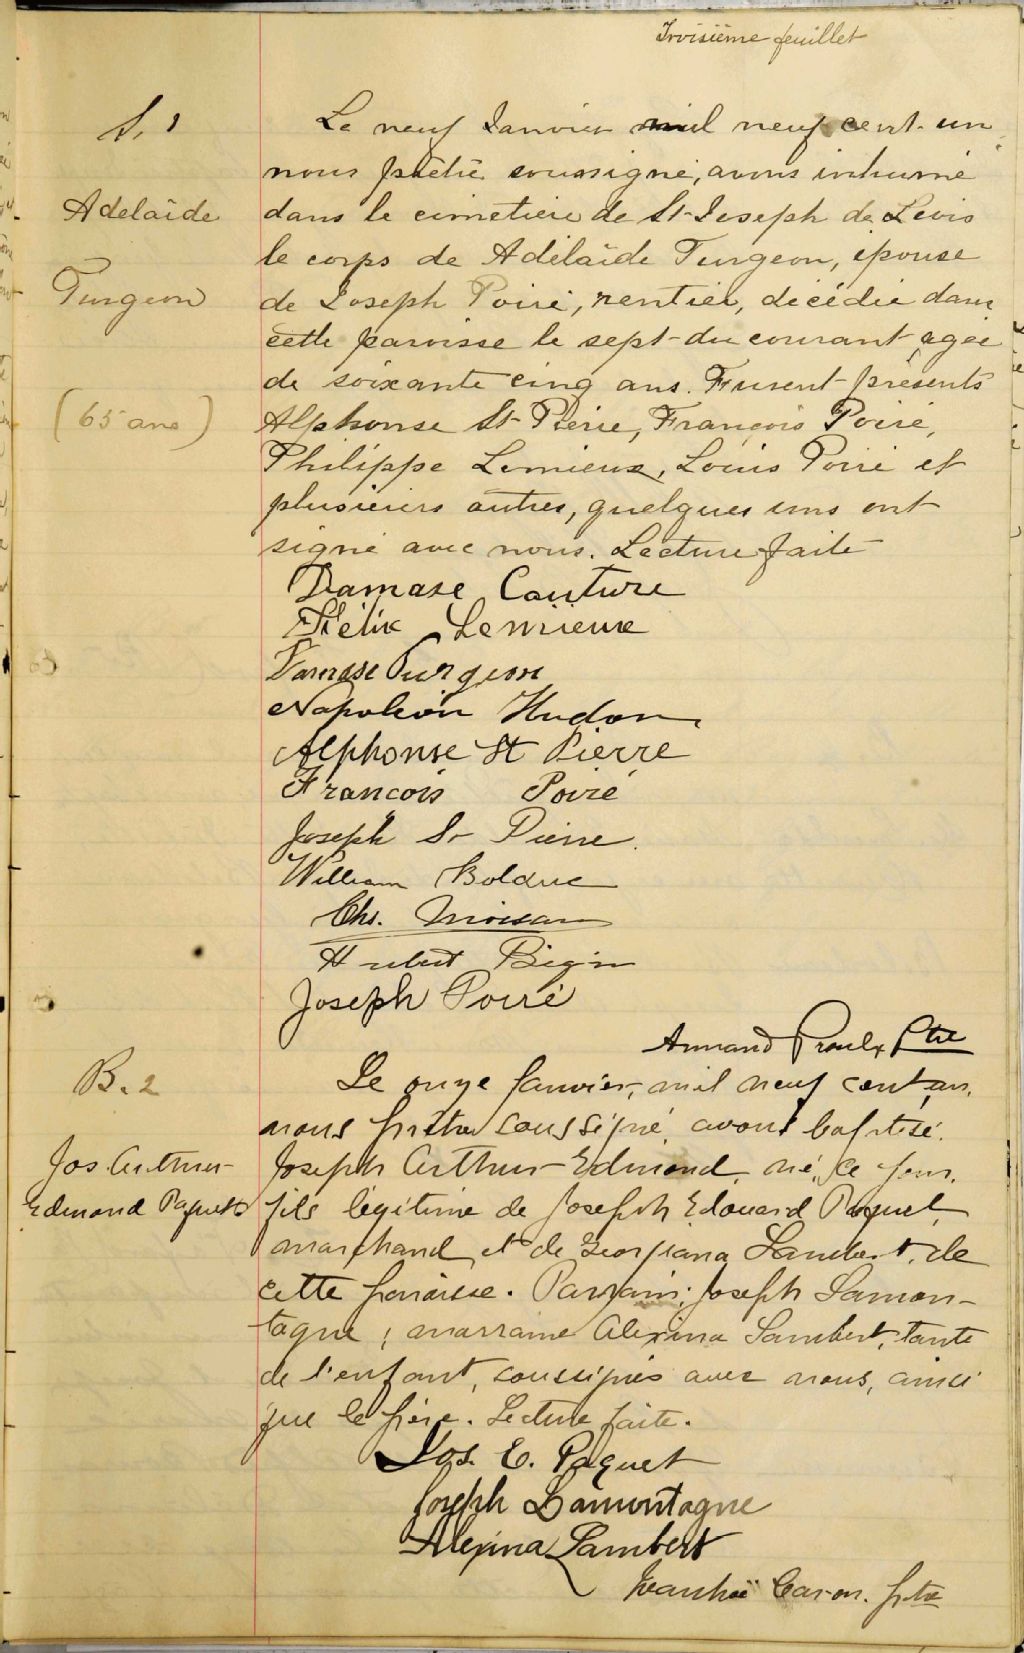 Troisième feuillet
S. 1
Adelaïde
Turgeon
(65 ans)
Le neuf Janvier mil neuf cent un
nous prêtre soussigné, avons inhumé
dans le cimetière de St-Joseph de Levis
le corps de Adélaïde Turgeon, épouse
de Joseph Poiré, rentier, décédée dans
cette paroisse le sept du courant agée
de soixante cinq ans. Furent présents
Alphonse St-Pierre, François Poiré,
Philippe Lemieux, Louis Poiré et
plusieurs autres, quelques uns ont
signé avec nous. Lecture faite
Damase Couture
Félix Lemieux
Damase Turgeon
Napoléon Hudon
Alphonse St Pierre
François Poiré
Joseph St Pierre.
William Bolduc
Chs. Moisan
Hubert Bégin
Joseph Poiré
Armand Proulx Ptre
B. 2
Jos. Arthur
Edmond Paquet
Le onze Janvier, mil neuf cent, un,
nous prêtre soussigné, avons baptisé.
Joseph Arthur Edmond, né, ce jour,
fils légitime de Joseph Edouard Paquet,
marchand, et de Georgiana Lambert, de
cette paroisse. Parrain: Joseph Lamon-
tagne; marraine Alexina Lambert, tante
de l'enfant, soussignés avec nous, ainsi
que le père. Lecture faite.
Jos. E. Paquet
Joseph Lamontagne
Alexina Lambert
Ivanhoë Caron. ptre